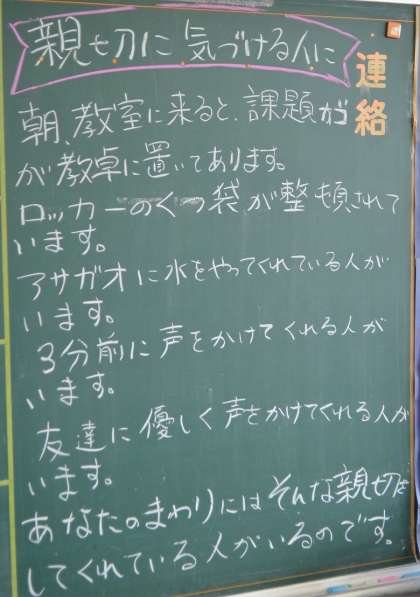 親切に気づける人に
連絡
朝、教室に来ると、課題が
が教卓に置いてあります。
ロッカーのくつ袋が整頓されて
います。
アサガオに水をやってくれている人が
います。
3分前に声をかけてくれる人が
います。
友達に優しく声をかけてくれる人が
います。
あなたのまわりにはそんな親切を
してくれている人がいるのです。